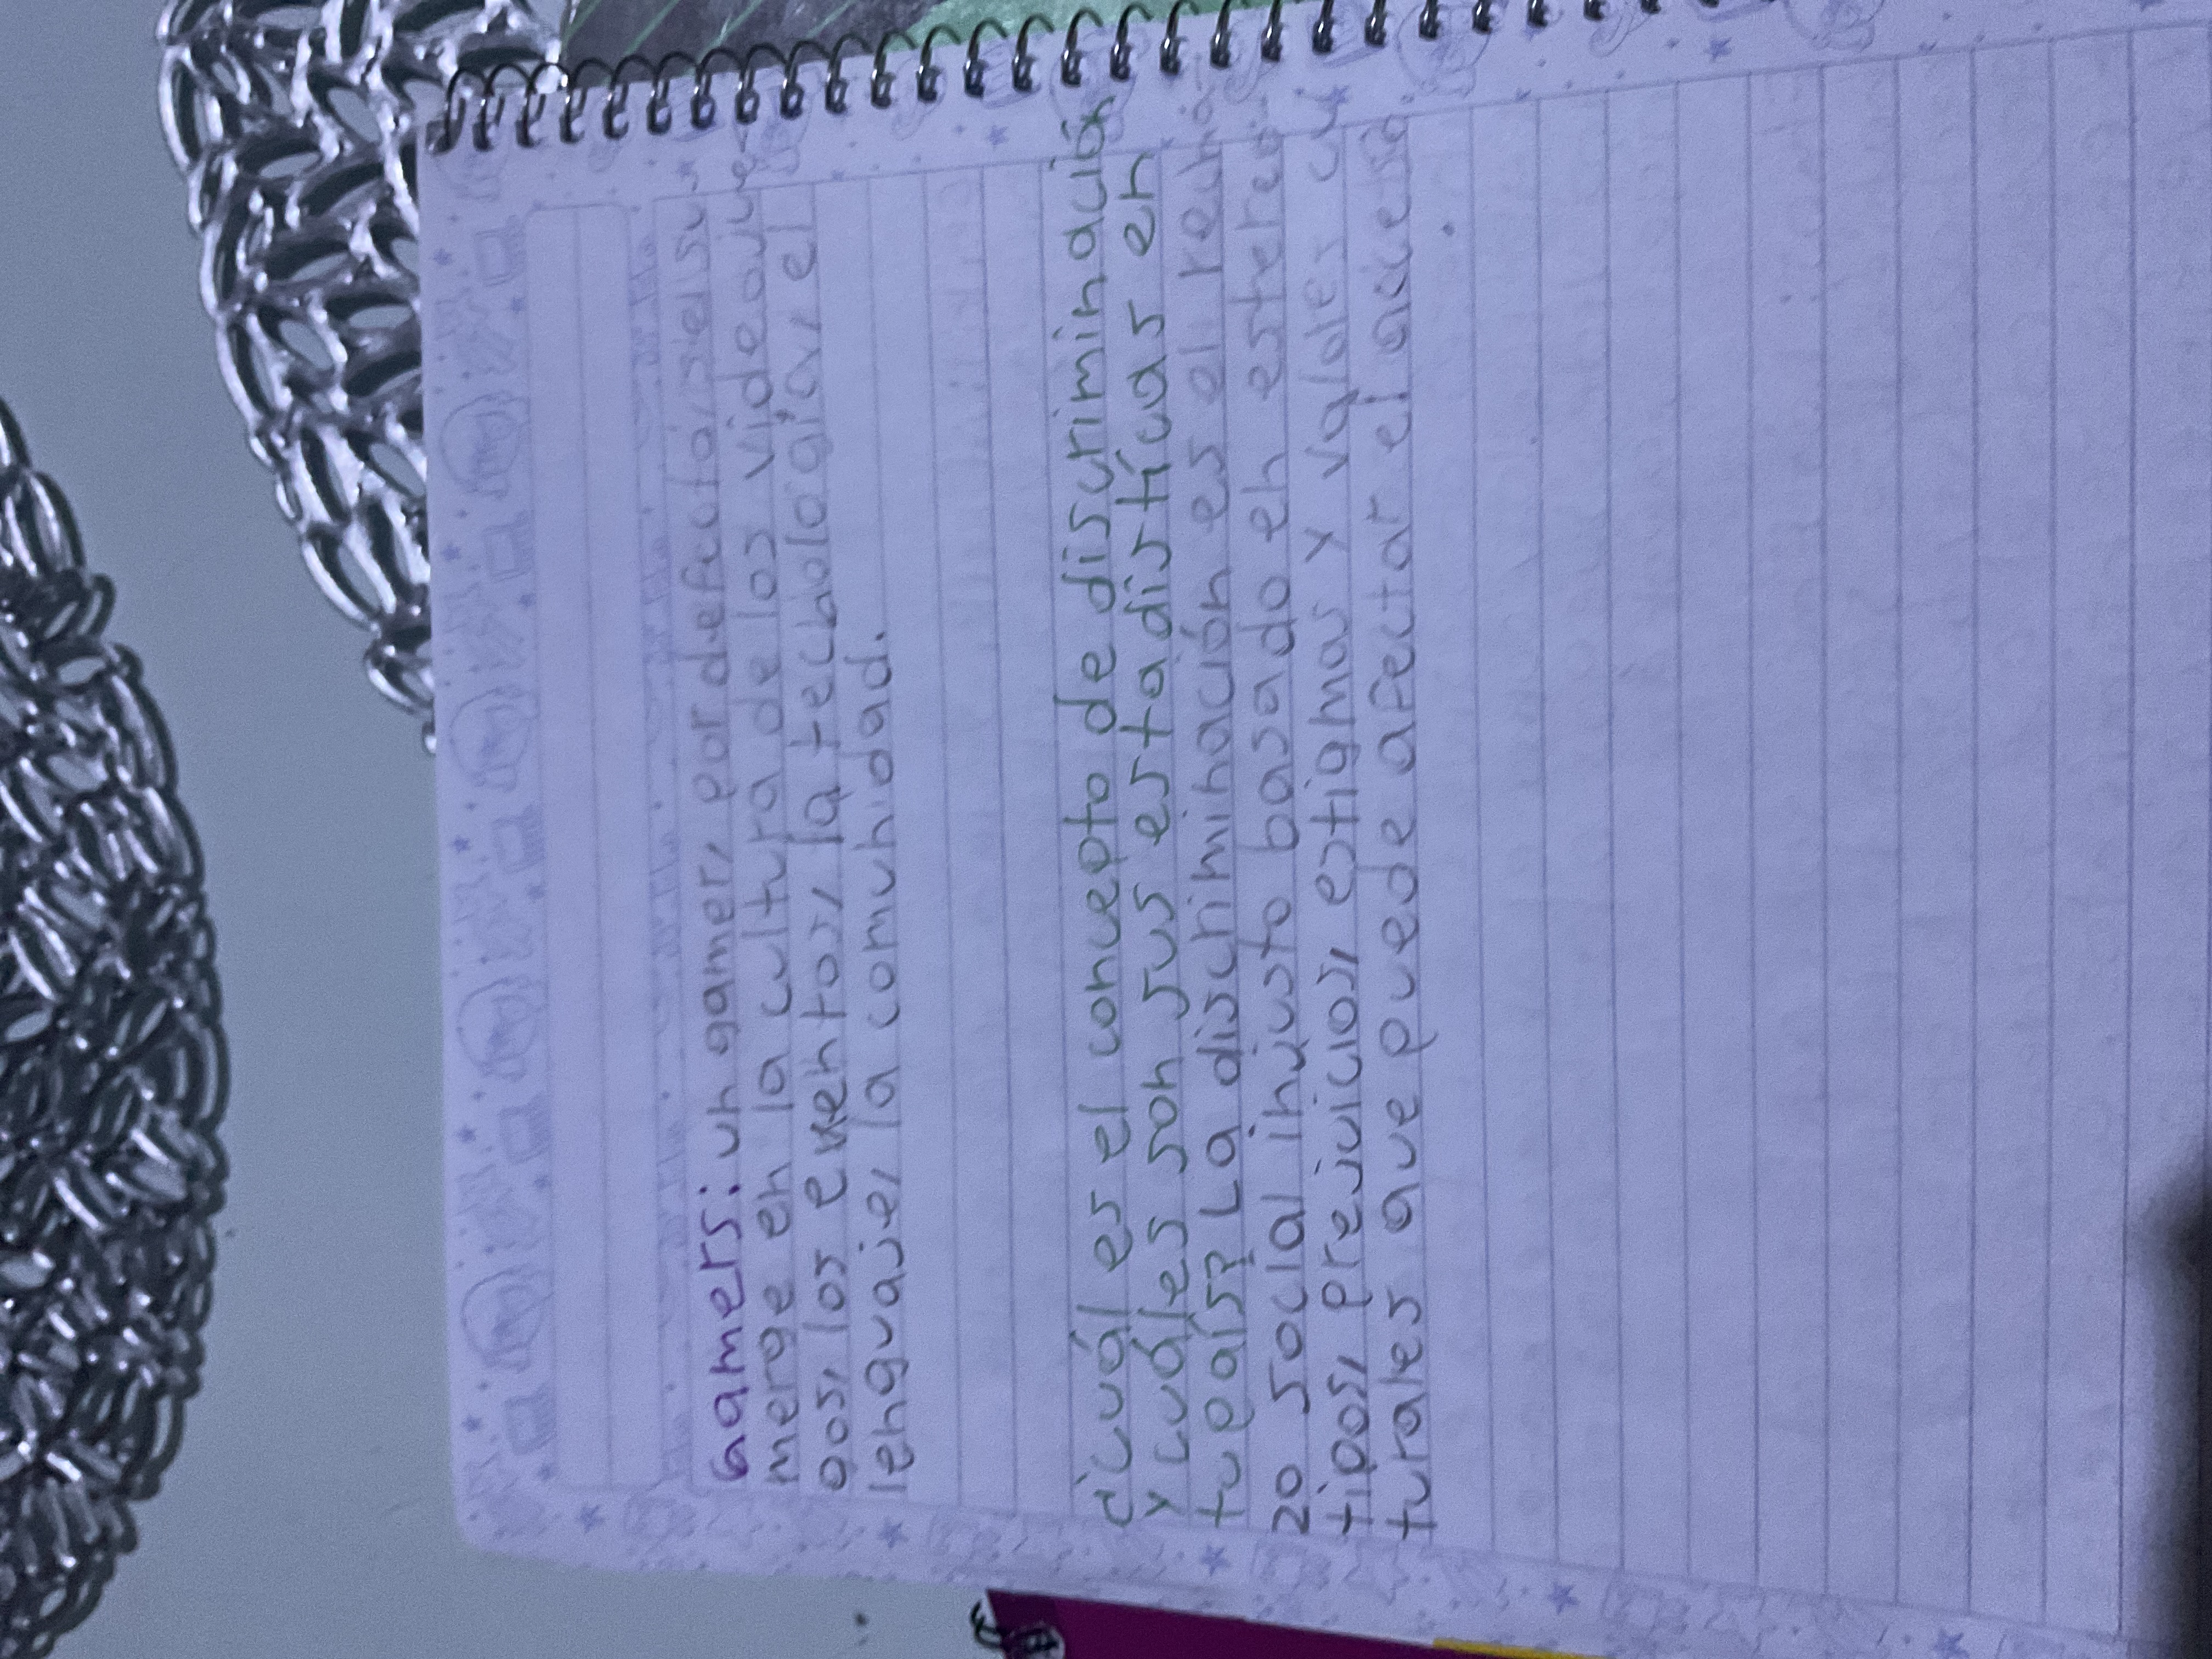 Gamers: un gamer, por defecto, se su
merge en la cultura de los videojue
gos, los eventos, la tecnología, el
lenguaje, la comunidad.
¿cuál es el concepto de discriminación
y cuáles son sus estadísticas en
tu país? La discriminación es el recha
zo social injusto basado en estereo
tipos, prejuicios, estigmas y valores cul
turales que puede afectar el acceso